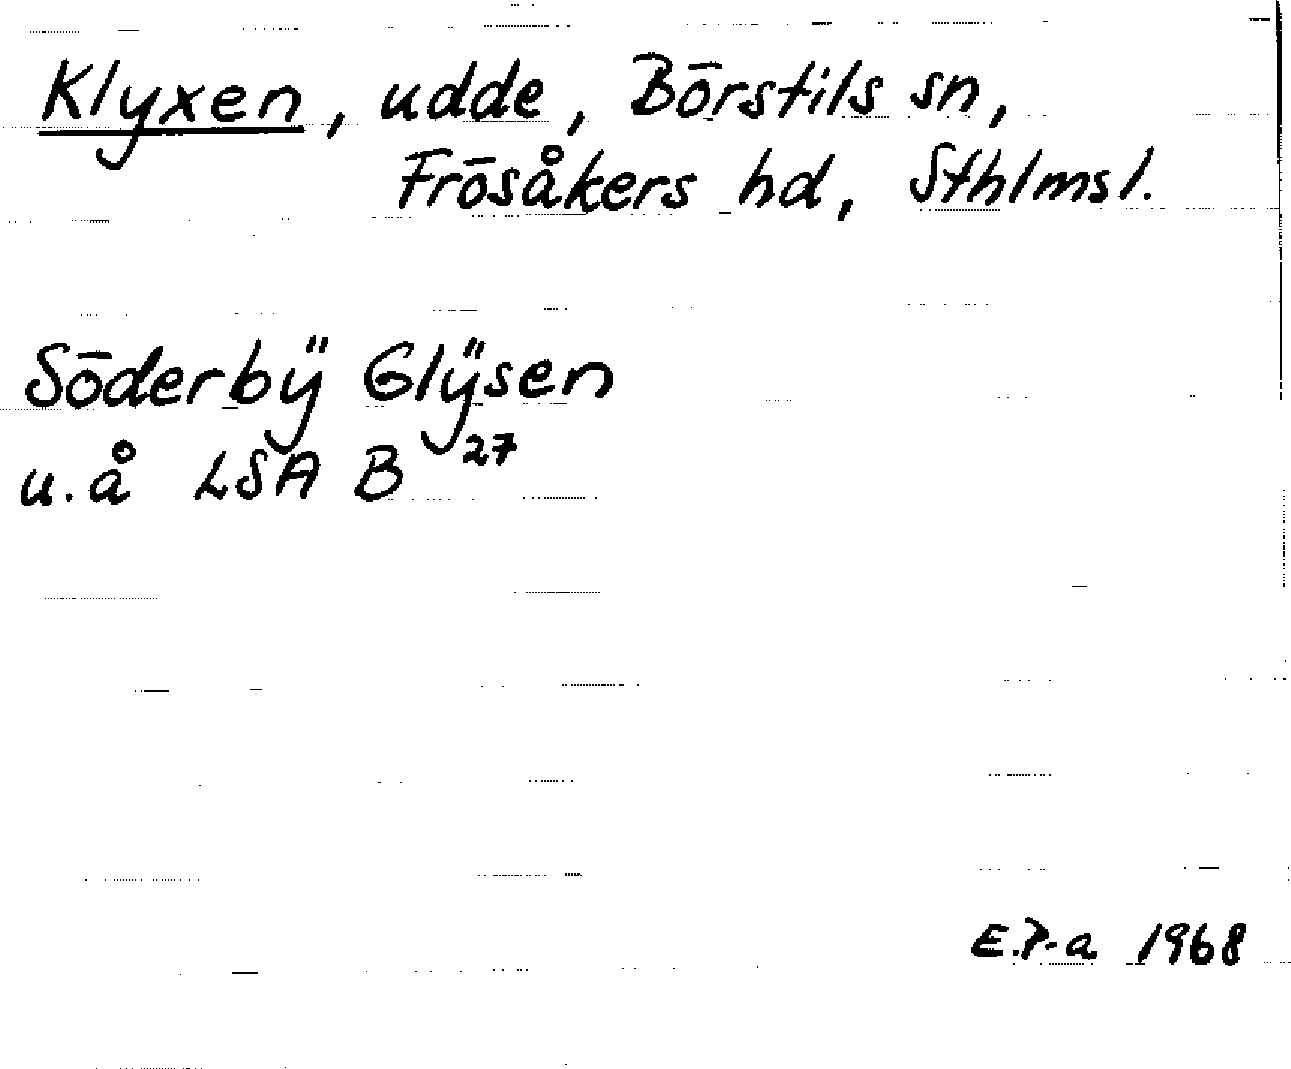 Klyxen, udde, Börstils sn,
Frösåkers hd, Sthlmsl.
Söderbÿ Glÿsen
u.å LSA B 27
E.P-a 1968